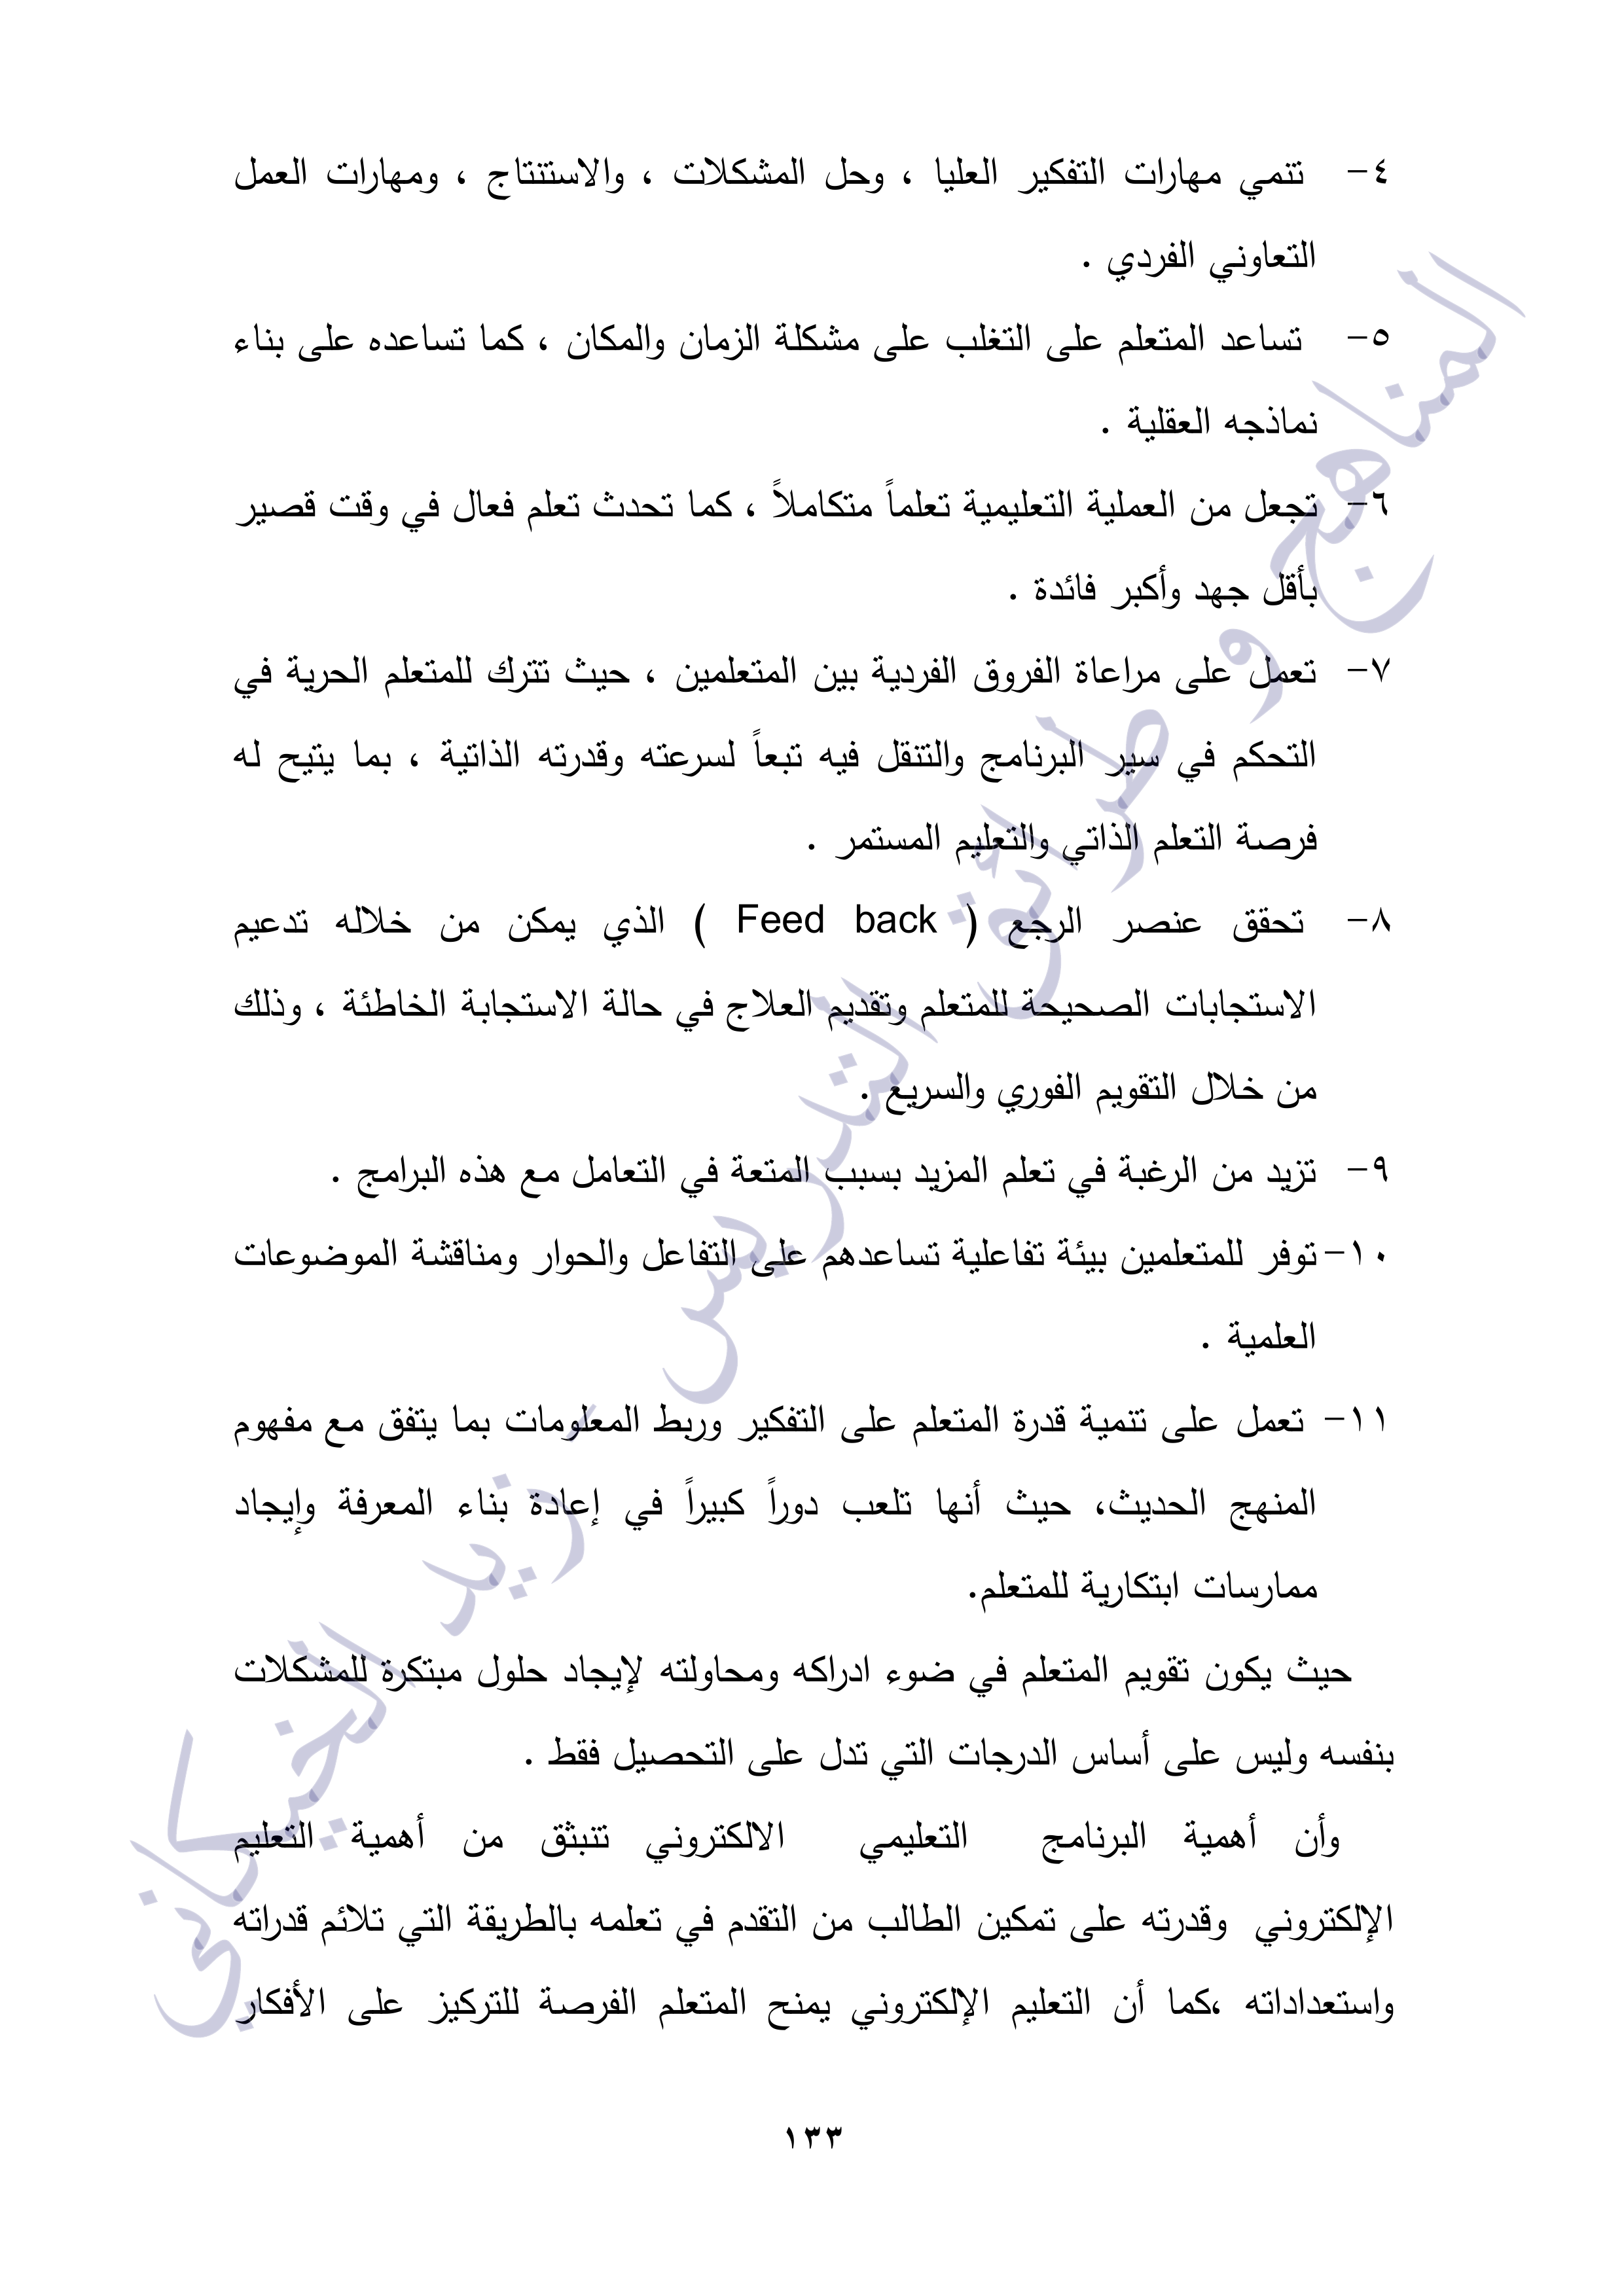 ٤- تنمي مهارات التفكير العليا ، وحل المشكلات ، والاستنتاج ، ومهارات العمل
التعاوني الفردي .
٥- تساعد المتعلم على التغلب على مشكلة الزمان والمكان ، كما تساعده على بناء
نماذجه العقلية .
٦- تجعل من العملية التعليمية تعلماً متكاملاً ، كما تحدث تعلم فعال في وقت قصير
بأقل جهد وأكبر فائدة .
٧- تعمل على مراعاة الفروق الفردية بين المتعلمين ، حيث تترك للمتعلم الحرية في
التحكم في سير البرنامج والتنقل فيه تبعاً لسرعته وقدرته الذاتية ، بما يتيح له
فرصة التعلم الذاتي والتعليم المستمر .
٨- تحقق عنصر الرجع ( Feed back ) الذي يمكن من خلاله تدعيم
الاستجابات الصحيحة للمتعلم وتقديم العلاج في حالة الاستجابة الخاطئة ، وذلك
من خلال التقويم الفوري والسريع .
٩- تزيد من الرغبة في تعلم المزيد بسبب المتعة في التعامل مع هذه البرامج .
١٠- توفر للمتعلمين بيئة تفاعلية تساعدهم على التفاعل والحوار ومناقشة الموضوعات
العلمية .
١١- تعمل على تنمية قدرة المتعلم على التفكير وربط المعلومات بما يتفق مع مفهوم
المنهج الحديث، حيث أنها تلعب دوراً كبيراً في إعادة بناء المعرفة وإيجاد
ممارسات ابتكارية للمتعلم.
حيث يكون تقويم المتعلم في ضوء ادراكه ومحاولته لإيجاد حلول مبتكرة للمشكلات
بنفسه وليس على أساس الدرجات التي تدل على التحصيل فقط .
وأن أهمية البرنامج التعليمي الالكتروني تنبثق من أهمية التعليم
الإلكتروني وقدرته على تمكين الطالب من التقدم في تعلمه بالطريقة التي تلائم قدراته
واستعداداته ،كما أن التعليم الإلكتروني يمنح المتعلم الفرصة للتركيز على الأفكار
١٣٣
المناهج و طرائق التدريس - زيد الخيكاني